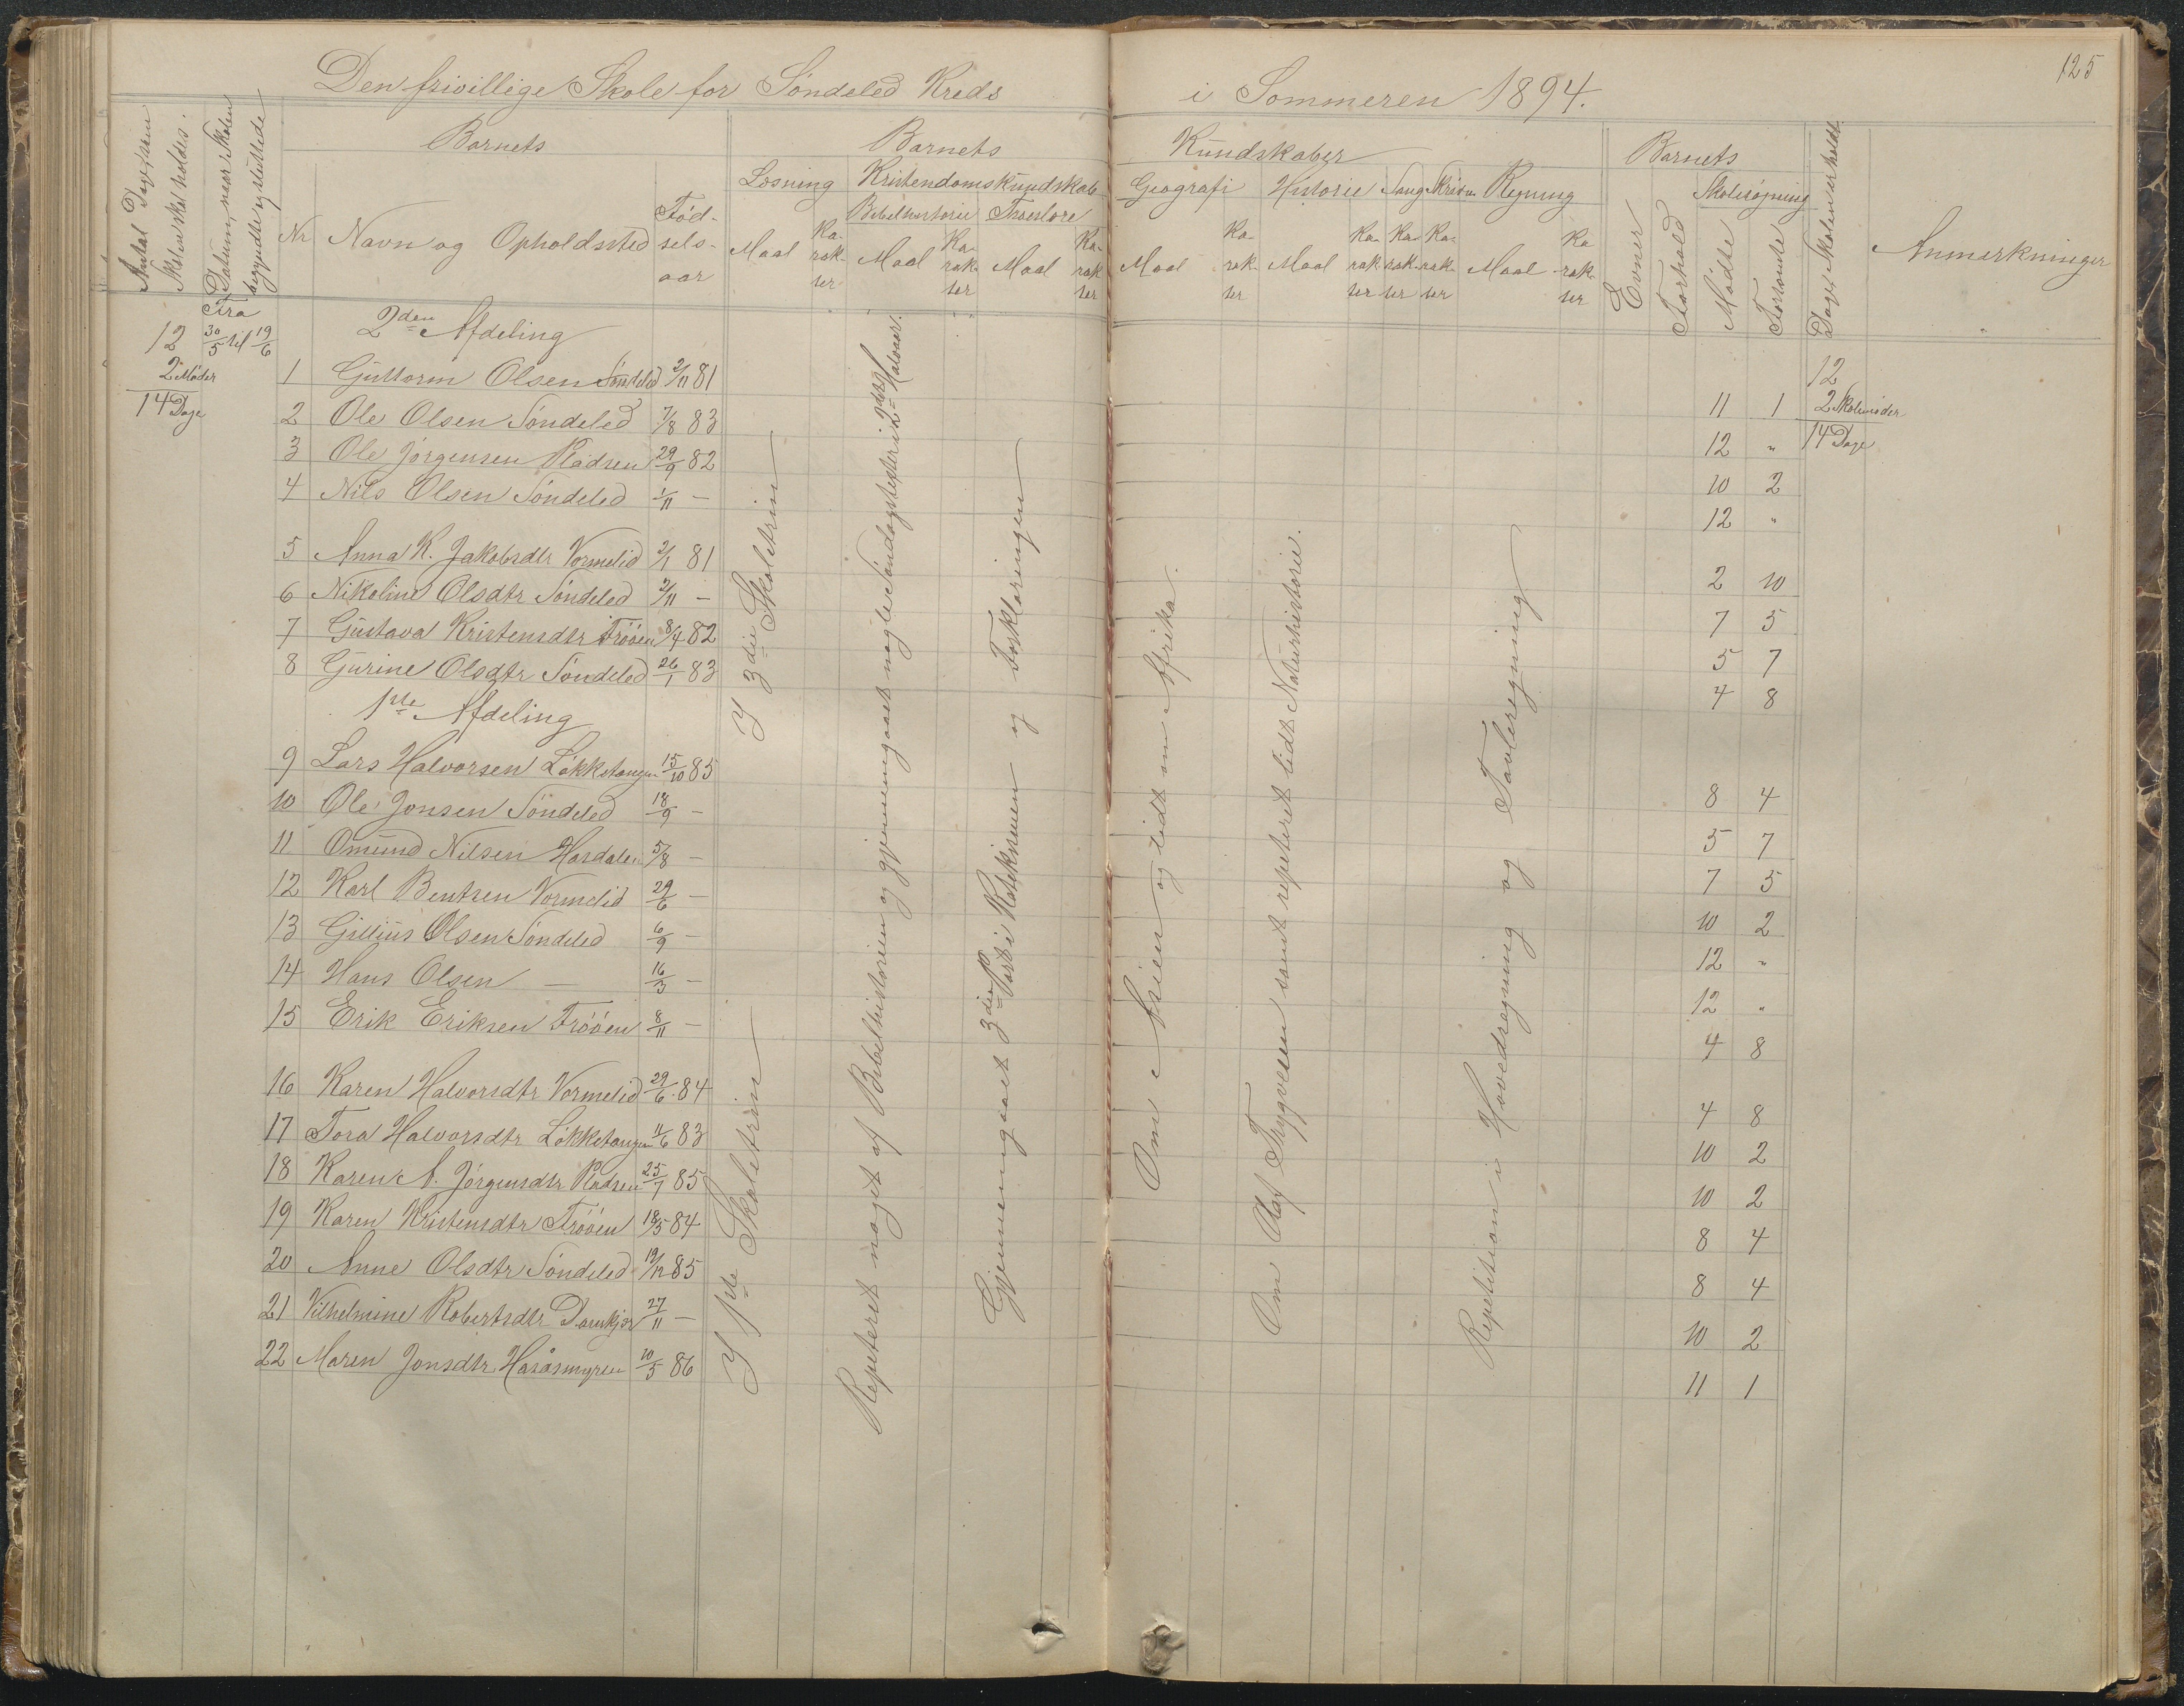 125
Den frivillige Skole for Söndeled Kreds i Sommeren 1894.
Antal Dage, som Skolen skal holdes.
Datum, naar Skolen begyndte og sluttede
Barnets
Barnets
Kundskaber
Barnets
Dage, Skolen er holdt
Nr
Navn og Opholdssted
Fød-
sels-
aar
Læsning
Kristendomskundskab
Bibelhistorie
Troeslære
Geografi
Historie
Sang
Skrivn
Regning
Evner
Forhold
Skolesøgning
Mødte
Forsømte
Anmærkninger
Maal
Ka-
rak-
ter
Maal
Ka-
rak-
ter
Maal
Ka-
rak
ter
Maal
Ka-
rak-
ter
Maal
Ka-
rak
ter
Ka-
rak-
ter
Ka-
rak-
ter
Maal
Ka
rak-
ter
12
Fra
30/5 til 19/6
2 Møder
14 Dage
2den Afdeling
1 Guttorm Olsen Söndeled 2/11 81
2 Ole Olsen Söndeled 7/8 83 11 1
3 Ole Jörgensen Pladsen 29/9 82 12 "
4 Nils Olsen Söndeled 1/11 — 10 2
12 "
5 Anna K. Jakobsdtr Vormelid 2/1 81 2 10
6 Nikoline Olsdtr Söndeled 2/11 — 7 5
7 Gustava Kristensdtr Trööen 8/4 82 5 7
8 Gurine Olsdtr Söndeled 26/1 83 4 8
1ste Afdeling
9 Lars Halvorsen Lökketangen 15/10 85 8 4
10 Ole Jonsen Söndeled 18/9 — 5 7
11 Omund Nilsen Hasdalen 5/8 — 7 5
12 Karl Bentsen Vormelid 29/6 — 10 2
13 Gillius Olsen Söndeled 6/9 — 12 "
14 Hans Olsen — 16/3 — 12 "
15 Erik Eriksen Trööen 8/11 — 4 8
16 Karen Halvorsdtr Vormelid 29/6 84 4 8
17 Tora Halvorsdtr Lökketangen 11/6 83 10 2
18 Karen A. Jörgensdtr Pladsen 25/7 85 10 2
19 Karen Kristensdtr Trööen 18/5 84 8 4
20 Anne Olsdtr Söndeled 19/12 85 8 4
21 Vilhelmine Robertsdtr 27/11 — 10 2
22 Maren Jonsdtr Hasåsmyren 10/5 86 11 1
12
2 Skolemøder
14 Dage
I 3die Skoletrin
I 1ste Skoletrin
Repeteret noget af Bibelhistorien og gjennemgaaet nogle Söndagstexter i 1det Halvaar.
Gjennemgaaet 3die Part i Katekismen og Forklaringen
Om Asien og lidt om Afrika.
Om Olaf Trygvesen samt repeteret lidt Naturhistorie.
Repetition i Hovedregning og Tavleregning